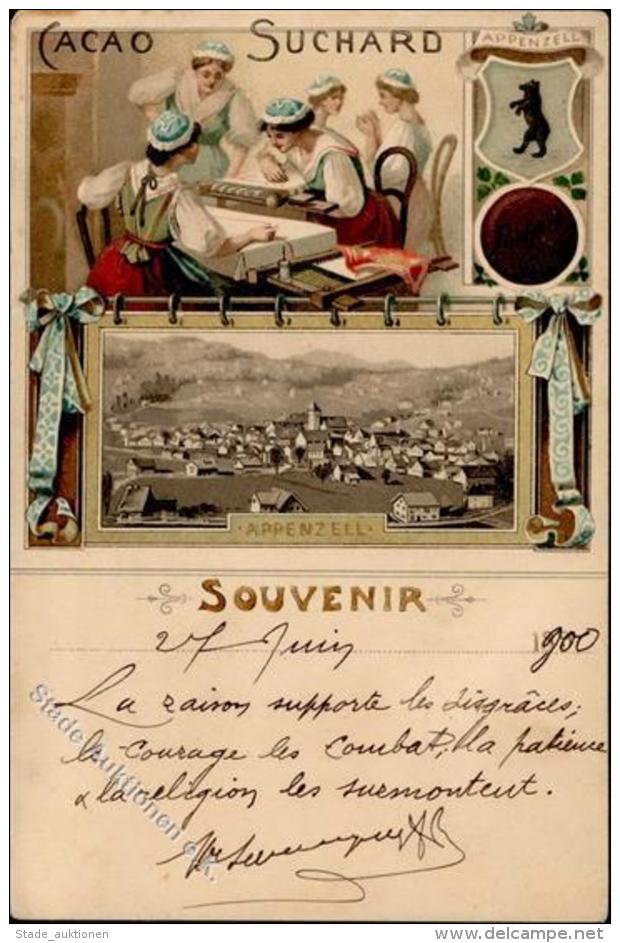 CACAO SUCHARD
APPENZELL
· APPENZELL ·
SOUVENIR
27 Juin 1900
La raison supporte les disgrâces;
le courage les combat, la patience
& la religion les surmontent.
Stade Auktionen e.K.
Stade_auktionen
www.delcampe.net